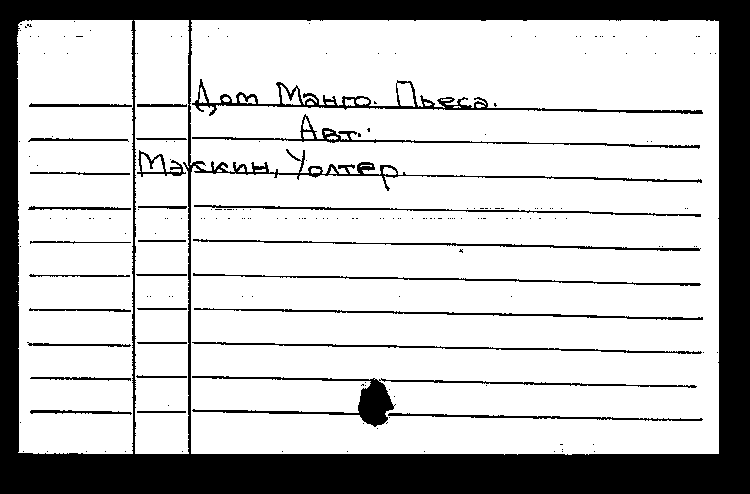 Дом Манго. Пьеса.
Авт.:
Маккин, Уолтер.